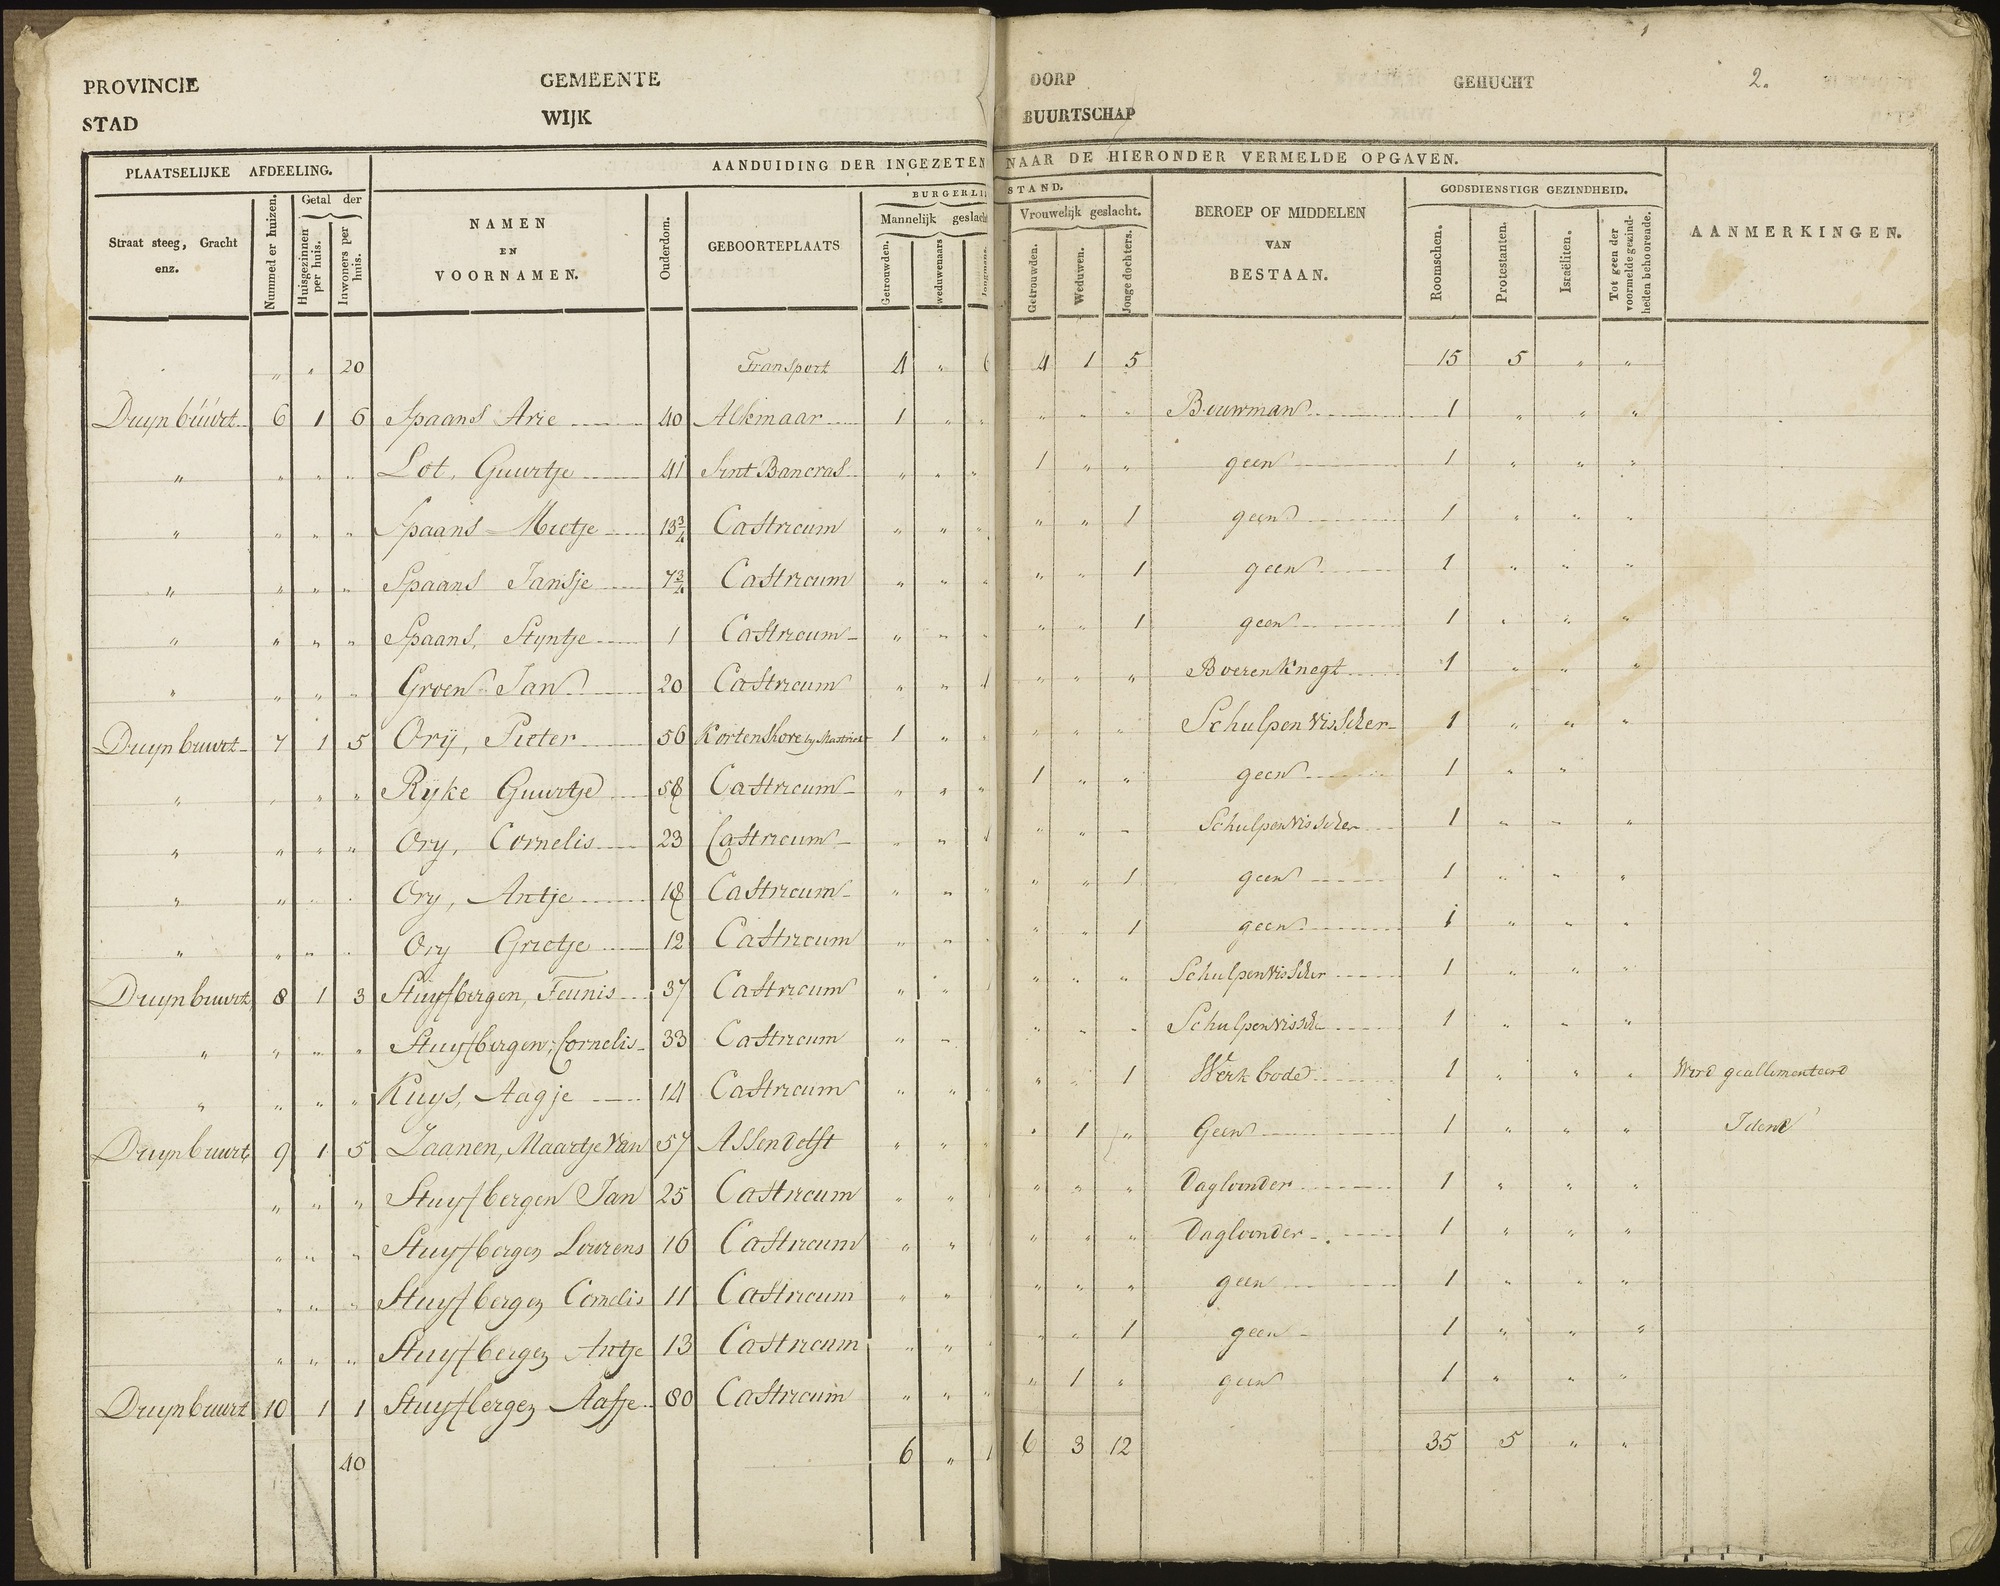 PROVINCIE GEMEENTE DORP GEHUCHT 2.
STAD WIJK BUURTSCHAP
PLAATSELIJKE AFDEELING. AANDUIDING DER INGEZETEN NAAR DE HIERONDER VERMELDE OPGAVEN.
Straat steeg, Gracht enz.
Nummed er huizen.
Getal der
Huisgezinnen per huis.
Inwoners per huis.
NAMEN
EN
VOORNAMEN.
Ouderdom.
GEBOORTEPLAATS
BURGERLI STAND.
Mannelijk geslacht
Getrouwden.
weduwenaars
Jongmans.
Vrouwelijk geslacht.
Getrouwden.
Weduwen.
Jonge dochters.
BEROEP OF MIDDELEN
VAN
BESTAAN.
GODSDIENSTIGE GEZINDHEID.
Roomschen.
Protestanten.
Israëliten.
Tot geen der voormelde gezindheden behoorende.
AANMERKINGEN.
" " 20 Transport 4 " 6 4 1 5 15 5 " "
Duyn buurt 6 1 6 Spaans Arie 40 Alkmaar 1 " " " " " Bouwman 1 " " "
" " " " Lot, Guurtje 41 Sint Bancras " " " 1 " " geen 1 " " "
" " " " Spaans Mietje 13¾ Castricum " " " " " 1 geen 1 " " "
" " " " Spaans Jansje 7¾ Castricum " " " " " 1 geen 1 " " "
" " " " Spaans, Styntje 1 Castricum " " " " " 1 geen 1 " " "
" " " " Groen Jan 20 Castricum " " 1 " " " Boeren Knegt 1 " " "
Duyn buurt 7 1 5 Orij, Pieter 56 Kortenshore by Mastricht 1 " " " " " Schulpen Visscher 1 " " "
" " " " Ryke Guurtje 58 Castricum " " " 1 " " geen 1 " "
" " " " Ory, Cornelis 23 Castricum " " 1 " " " Schulpen Visscher 1 " " "
" " " " Ory, Antje 18 Castricum " " " " " 1 geen 1 " " "
" " " " Ory Grietje 12 Castricum " " " " " 1 geen 1 " " "
Duyn buurt 8 1 3 Stuyfbergen, Teunis 37 Castricum " " " " " Schulpen Visscher 1 " " "
" " " " Stuyfbergen, Cornelis 33 Castricum " " " " " Schulpen Vissche 1 " " "
" " " " Kuys, Aagje 14 Castricum " " " " " 1 Werk bode 1 " " " Werd geallimenteerd
Duyn buurt 9 1 5 Zaanen, Maartje Van 57 Assendelft " " " " 1 " Geen 1 " " " Idem
" " " Stuyfbergen Jan 25 Castricum " " " " " Dagloonder 1 " " "
" " " Stuyfbergen Lourens 16 Castricum " " " " " Dagloonder 1 " " "
" " " Stuyfbergen Cornelis 11 Castricum " " " " " geen 1 " " "
" " " Stuyfbergen Antje 13 Castricum " " " " " 1 geen 1 " " "
Duyn buurt 10 1 1 Stuyfbergen Aafje 80 Castricum " " " " 1 " geen 1 " " "
40 6 " 1 6 3 12 35 5 " "